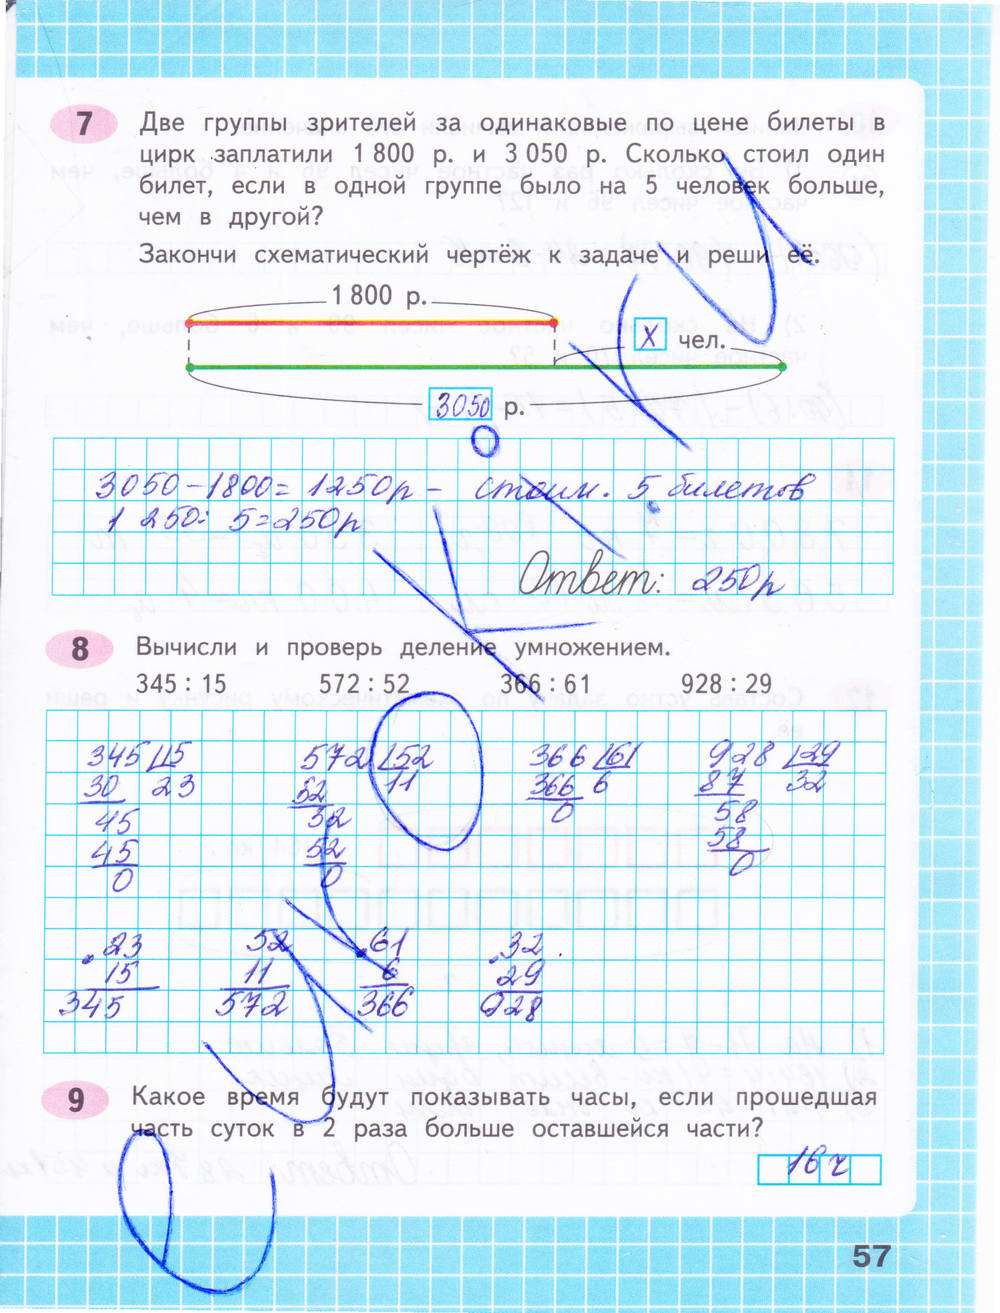 7 Две группы зрителей за одинаковые по цене билеты в
цирк заплатили 1 800 р. и 3 050 р. Сколько стоил один
билет, если в одной группе было на 5 человек больше,
чем в другой?
Закончи схематический чертёж к задаче и реши её.
1 800 р.
x чел.
3050 р.
3050 - 1800 = 1250р - стоим. 5 билетов
1 250 : 5 = 250р
Ответ: 250р
8 Вычисли и проверь деление умножением.
345 : 15 572 : 52 366 : 61 928 : 29
345 15 572 52 366 61 928 29
30 23 52 11 366 6 87 32
45 52 0 58
45 52 58
0 0 0
23 52 61 32
15 11 6 29
345 572 366 928
9 Какое время будут показывать часы, если прошедшая
часть суток в 2 раза больше оставшейся части?
16 ч
57